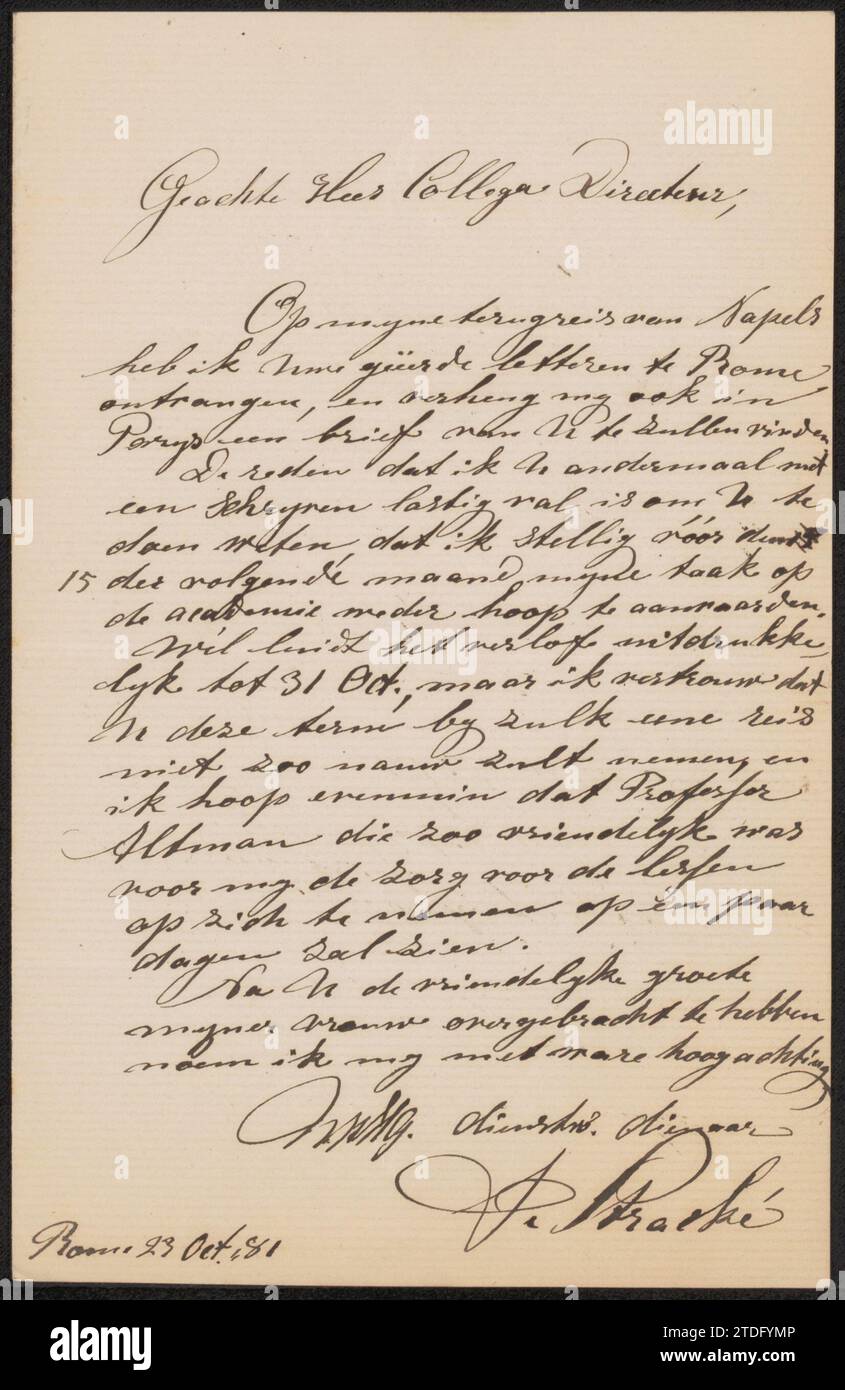 Geachte Heer Collega Directeur,
Op myne terugreis van Napels
heb ik Uwe geëerde letteren te Rome
ontvangen, en verheug my ook in
Parys een brief van U te zullen vinden
De reden dat ik U andermaal met
een schryven lastig val, is om U te
doen weten, dat ik stellig vóór den
15 der volgende maand myne taak op
de academie weder hoop te aanvaarden.
Wel luidt het verlof uitdrukke-
lyk tot 31 Oct., maar ik vertrouw dat
U deze term by zulk eene reis
niet zoo nauw zult nemen, en
ik hoop evenmin dat Professor
Altman die zoo vriendelyk was
voor my de zorg voor de lessen
op zich te nemen op een paar
dagen zal zien.
Na U de vriendelyke groete
myner vrouw overgebracht te hebben
noem ik my met ware hoogachting
dienstw. dienaar
Stracké
Rome 23 Oct. 81
alamy
Image ID: 2TDFYMP
www.alamy.com